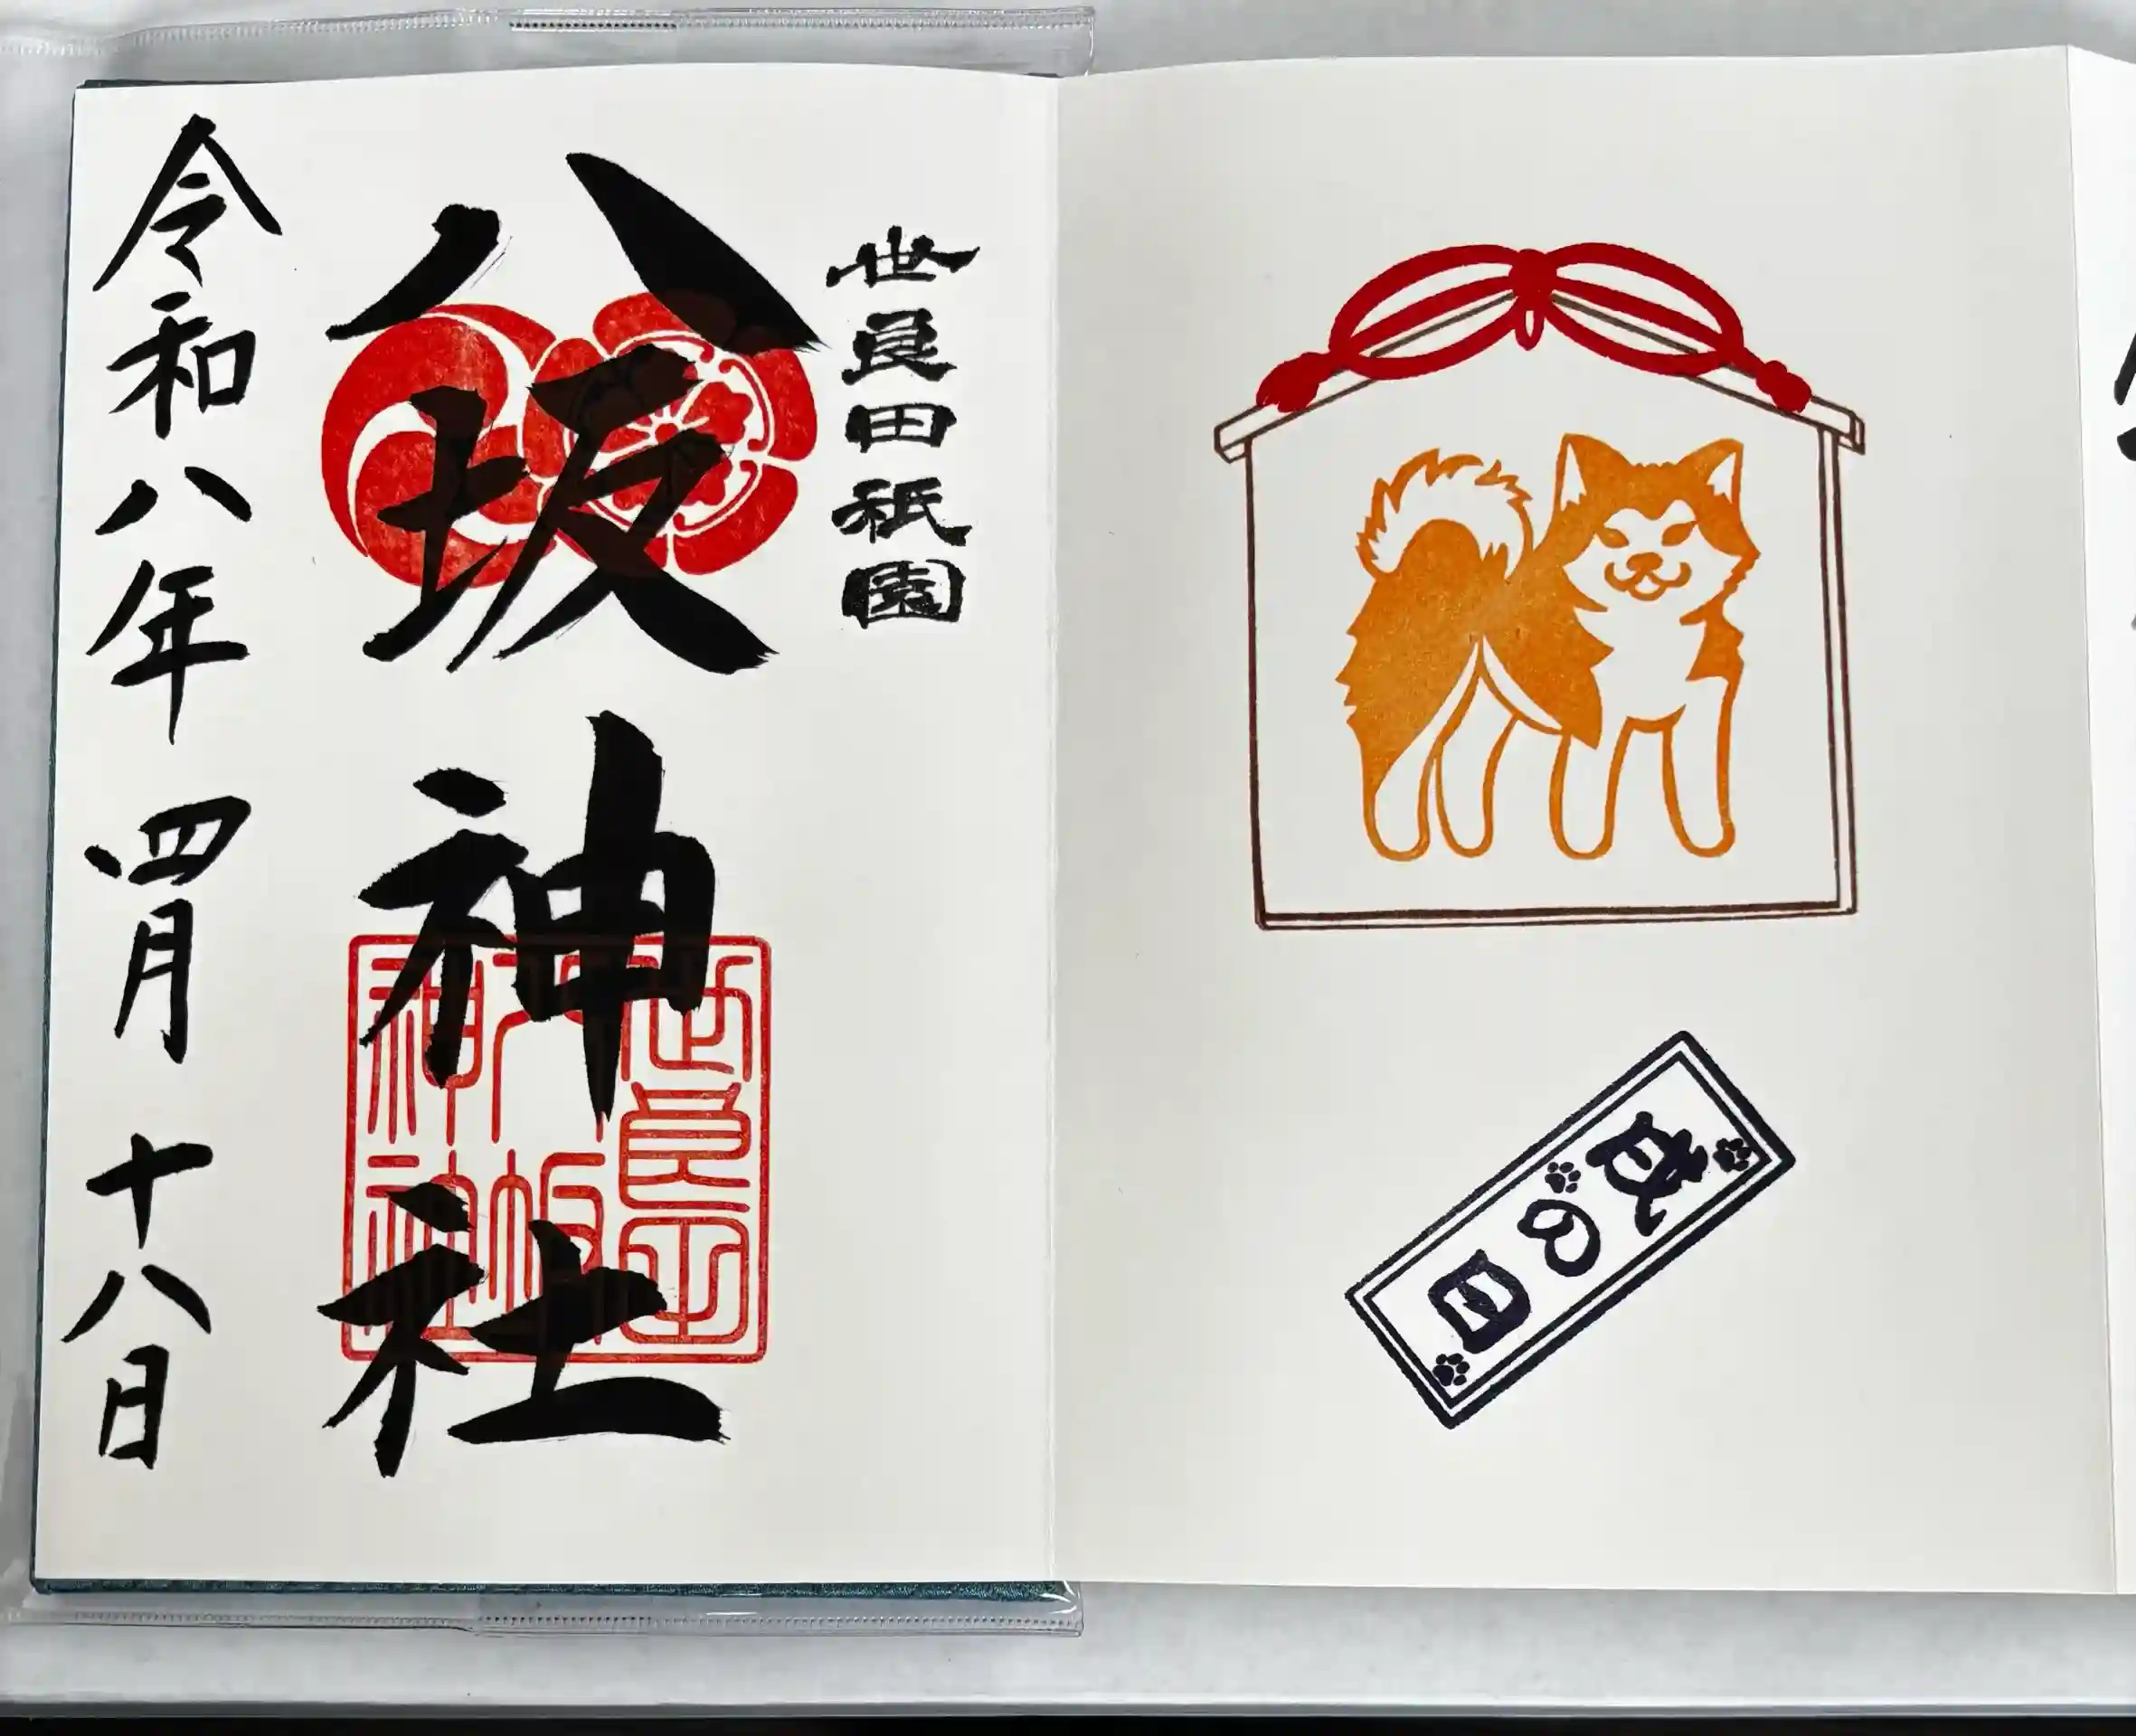 世良田祇園
八坂神社
世良田
八坂
神社
令和八年四月十八日
戌の日